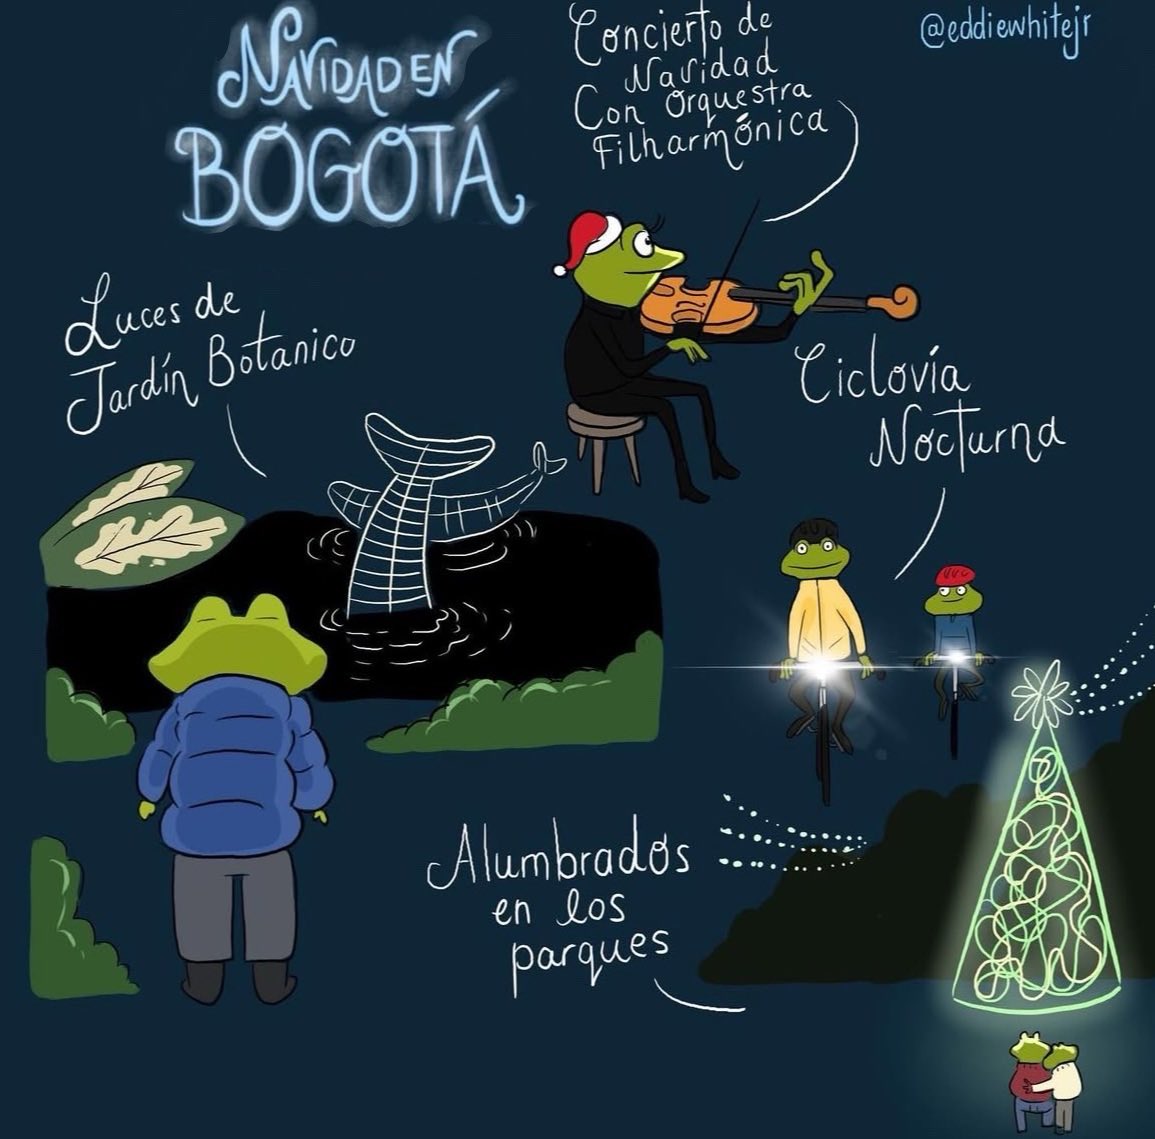 NAVIDAD EN
BOGOTÁ
Concierto de
Navidad
Con Orquestra
Filharmónica
@eddiewhitejr
Luces de
Jardín Botanico
Ciclovía
Nocturna
Alumbrados
en los
parques